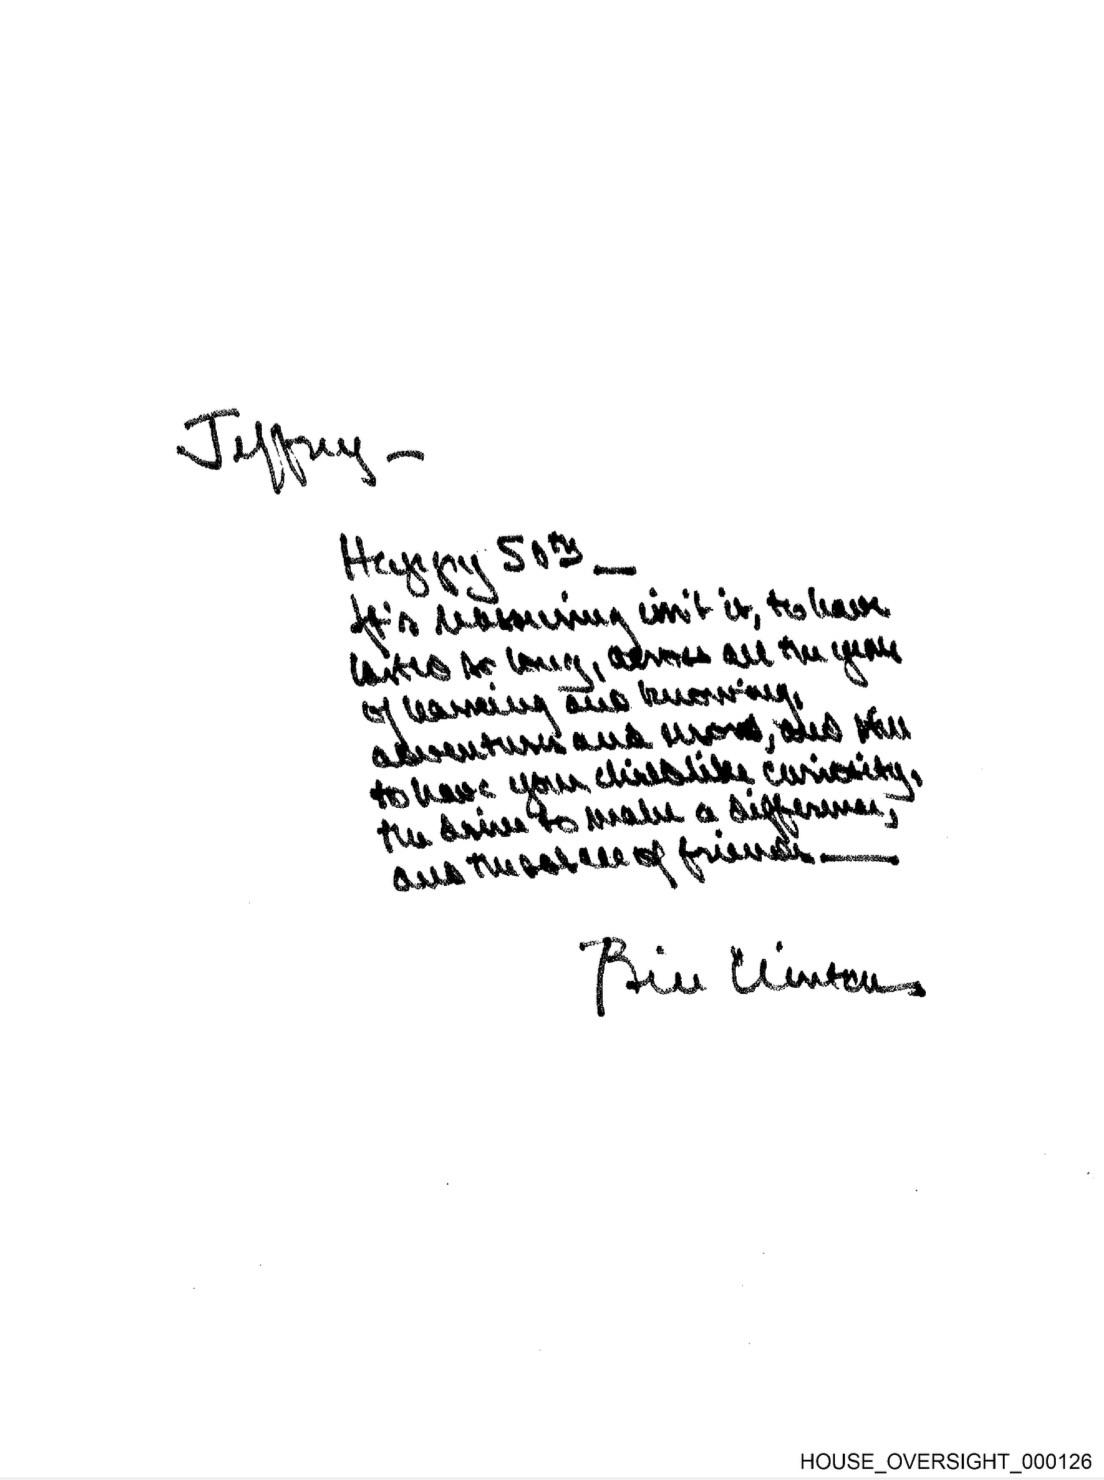 Jeffrey —
Happy 50th —
It's reassuring isn't it, to have
lasted so long, across all the years
of learning and knowing,
adventures and, and still
to have your childlike curiosity,
the drive to make a difference,
and the solace of friends —
Bill Clinton
HOUSE_OVERSIGHT_000126